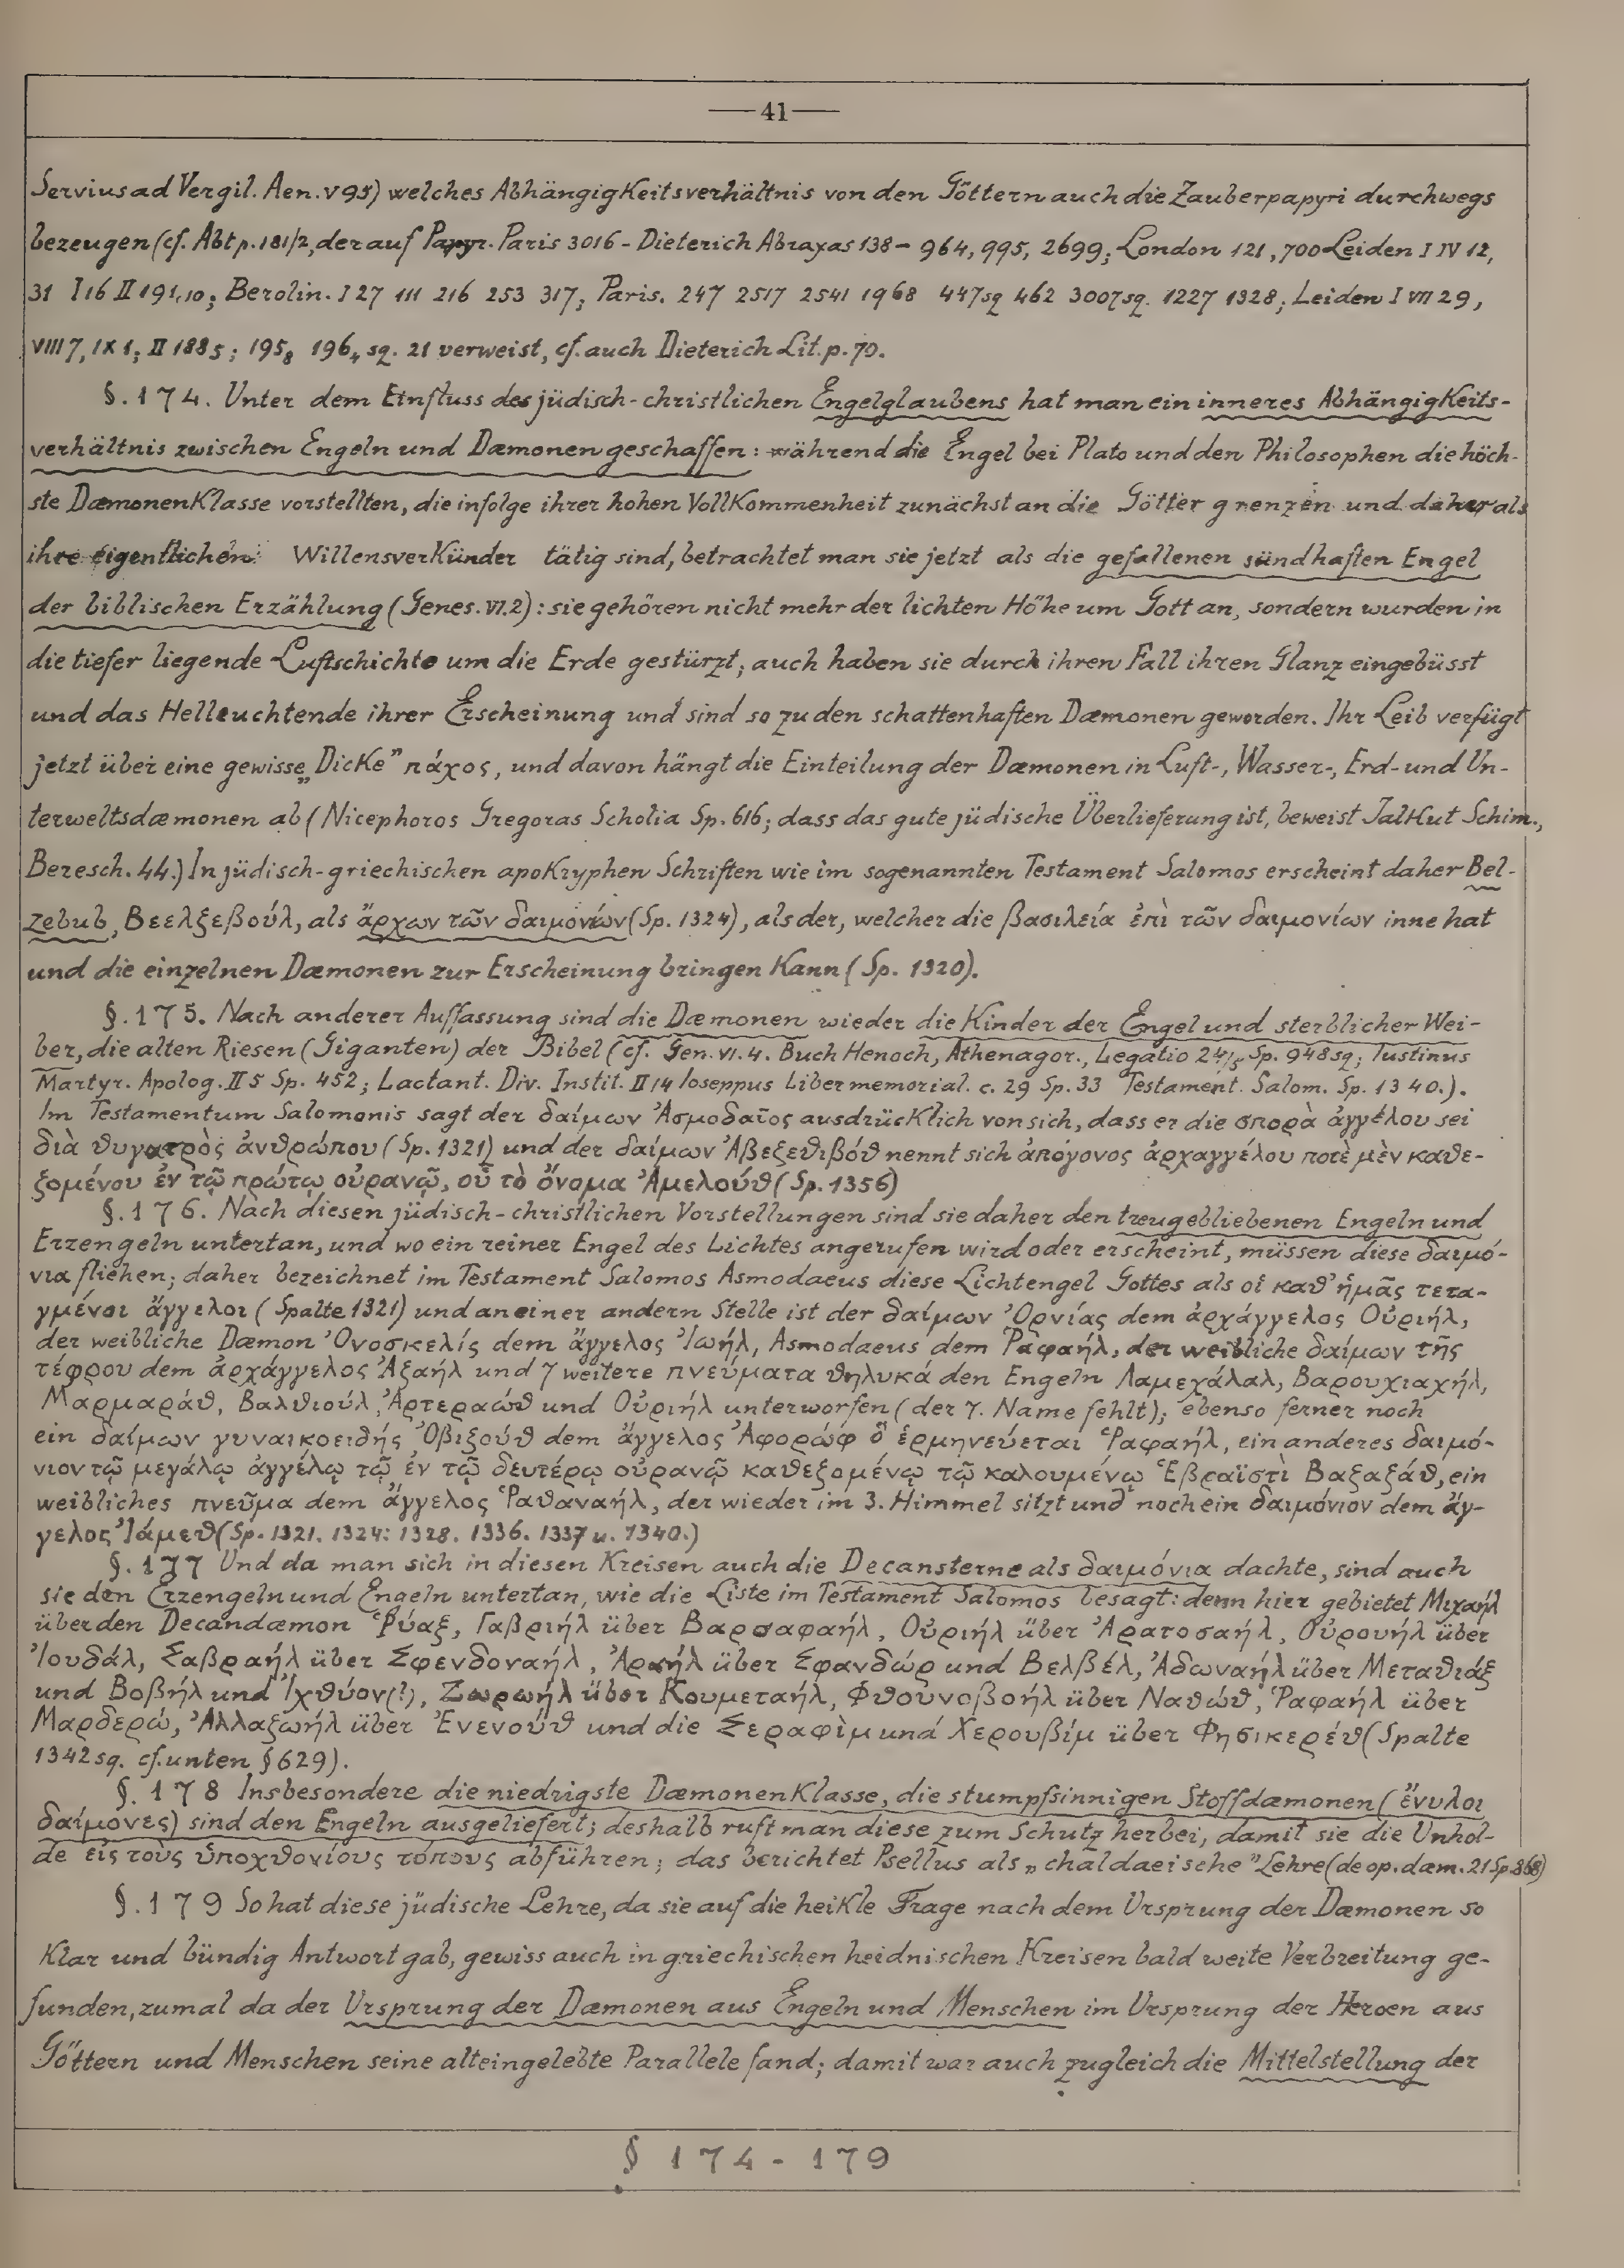 — 41 —
Servius ad Vergil. Aen. V 95) welches Abhängigkeitsverhältnis von den Göttern auch die Zauberpapyri durchwegs
bezeugen (cf. Abt p. 181/2, der auf Papyr. Paris 3016 - Dieterich Abraxas 138 - 964, 995, 2699; London 121, 700 Leiden I IV 12,
31 I 16 II 191,10; Berolin. I 27 111 216 253 317; Paris. 247 2517 2541 1968 447sq 462 3007sq. 1227 1328; Leiden I VII 29,
VIII 7, IX 1; II 1885; 195₈ 196₄ sq. 21 verweist, cf. auch Dieterich Lit. p. 70.
§. 174. Unter dem Einfluss des jüdisch-christlichen Engelglaubens hat man ein inneres Abhängigkeits-
verhältnis zwischen Engeln und Dæmonen geschaffen: während die Engel bei Plato und den Philosophen die höch-
ste Dæmonenklasse vorstellten, die infolge ihrer hohen Vollkommenheit zunächst an die Götter grenzen und daher als
ihre eigentlichen Willensverkünder tätig sind, betrachtet man sie jetzt als die gefallenen sündhaften Engel
der biblischen Erzählung (Genes. VI.2): sie gehören nicht mehr der lichten Höhe um Gott an, sondern wurden in
die tiefer liegende Luftschichte um die Erde gestürzt; auch haben sie durch ihren Fall ihren Glanz eingebüsst
und das Helleuchtende ihrer Erscheinung und sind so zu den schattenhaften Dæmonen geworden. Ihr Leib verfügt
jetzt über eine gewisse „Dicke" πάχος, und davon hängt die Einteilung der Dæmonen in Luft-, Wasser-, Erd- und Un-
terweltsdæmonen ab (Nicephoros Gregoras Scholia Sp. 616; dass das gute jüdische Überlieferung ist, beweist Jalkut Schim.,
Beresch. 44.) In jüdisch-griechischen apokryphen Schriften wie im sogenannten Testament Salomos erscheint daher Bel-
zebub, Βεελζεβούλ, als ἄρχων τῶν δαιμονίων (Sp. 1324), als der, welcher die βασιλεία ἐπὶ τῶν δαιμονίων inne hat
und die einzelnen Dæmonen zur Erscheinung bringen kann (Sp. 1320).
§. 175. Nach anderer Auffassung sind die Dæmonen wieder die Kinder der Engel und sterblicher Wei-
ber, die alten Riesen (Giganten) der Bibel (cf. Gen. VI. 4. Buch Henoch, Athenagor., Legatio 24/5 Sp. 948sq; Iustinus
Martyr. Apolog. II 5 Sp. 452; Lactant. Div. Instit. II 14 Ioseppus Liber memorial. c. 29 Sp. 33 Testament. Salom. Sp. 1340.).
Im Testamentum Salomonis sagt der δαίμων Ἀσμοδαῖος ausdrücklich von sich, dass er die σπορὰ ἀγγέλου sei
διὰ θυγατρὸς ἀνθρώπου (Sp. 1321) und der δαίμων Ἀβεζεθιβόθ nennt sich ἀπόγονος ἀρχαγγέλου ποτὲ μὲν καθε-
ζομένου ἐν τῷ πρώτῳ οὐρανῷ, οὗ τὸ ὄνομα Ἀμελούθ (Sp. 1356)
§. 176. Nach diesen jüdisch-christlichen Vorstellungen sind sie daher den treugebliebenen Engeln und
Erzengeln untertan, und wo ein reiner Engel des Lichtes angerufen wird oder erscheint, müssen diese δαιμό-
νια fliehen; daher bezeichnet im Testament Salomos Asmodaeus diese Lichtengel Gottes als οἱ καθ' ἡμᾶς τετα-
γμένοι ἄγγελοι (Spalte 1321) und an einer andern Stelle ist der δαίμων Ὀρνίας dem ἀρχάγγελος Οὐριήλ,
der weibliche Dæmon Ὀνοσκελίς dem ἄγγελος Ἰωήλ, Asmodaeus dem Ῥαφαήλ, der weibliche δαίμων τῆς
τέφρου dem ἀρχάγγελος Ἀζαήλ und 7 weitere πνεύματα θηλυκά den Engeln Λαμεχάλαλ, Βαρουχιαχήλ,
Μαρμαράθ, Βαλθιούλ, Ἀρτεραώθ und Οὐριήλ unterworfen (der 7. Name fehlt); ebenso ferner noch
ein δαίμων γυναικοειδής Ὀβιζούθ dem ἄγγελος Ἀφορώφ ὃ ἑρμηνεύεται Ῥαφαήλ, ein anderes δαιμό-
νιον τῷ μεγάλῳ ἀγγέλῳ τῷ ἐν τῷ δευτέρῳ οὐρανῷ καθεζομένῳ τῷ καλουμένῳ Ἑβραϊστὶ Βαζαζάθ, ein
weibliches πνεῦμα dem ἄγγελος Ῥαθαναήλ, der wieder im 3. Himmel sitzt und noch ein δαιμόνιον dem ἄγ-
γελος Ἰάμεθ (Sp. 1321. 1324: 1328. 1336. 1337 u. 1340.)
§. 177 Und da man sich in diesen Kreisen auch die Decansterne als δαιμόνια dachte, sind auch
sie den Erzengeln und Engeln untertan, wie die Liste im Testament Salomos besagt: denn hier gebietet Μιχαήλ
über den Decandæmon Ῥύαξ, Γαβριήλ über Βαρσαφαήλ, Οὐριήλ über Ἀρατοσαήλ, Οὐρουήλ über
Ἰουδάλ, Σαβραήλ über Σφενδοναήλ, Ἀραήλ über Σφανδώρ und Βελβέλ, Ἀδωναήλ über Μεταθιάξ
und Βοβήλ und Ἰχθύον (!), Ζωρωήλ über Κουμεταήλ, Φθουνοβοήλ über Ναθώθ, Ῥαφαήλ über
Μαρδερώ, Ἀλλαζωήλ über Ἐνενούθ und die Σεραφὶμ und Χερουβίμ über Φησικερέθ (Spalte
1342sq. cf. unten § 629).
§. 178 Insbesondere die niedrigste Dæmonenklasse, die stumpfsinnigen Stoffdæmonen (ἔνυλοι
δαίμονες) sind den Engeln ausgeliefert; deshalb ruft man diese zum Schutz herbei, damit sie die Unhol-
de εἰς τοὺς ὑποχθονίους τόπους abführen; das berichtet Psellus als „chaldaeische" Lehre (de op. dæm. 21 Sp. 868)
§. 179 So hat diese jüdische Lehre, da sie auf die heikle Frage nach dem Ursprung der Dæmonen so
klar und bündig Antwort gab, gewiss auch in griechischen heidnischen Kreisen bald weite Verbreitung ge-
funden, zumal da der Ursprung der Dæmonen aus Engeln und Menschen im Ursprung der Heroen aus
Göttern und Menschen seine alteingelebte Parallele fand; damit war auch zugleich die Mittelstellung der
§ 174 - 179